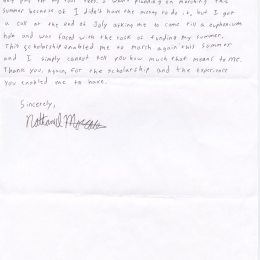 pay for my tour fees. I wasn't planning on marching this
summer because of I didn't have the money to do it, but I got
a call at the end of July asking me to come fill a euphonium
hole and was faced with the task of funding my summer.
This scholarship enabled me to march again this summer
and I simply cannot tell you how much that means to me.
Thank you, again, for the scholarship and the experience
you enabled me to have.
Sincerely,
Nathaniel